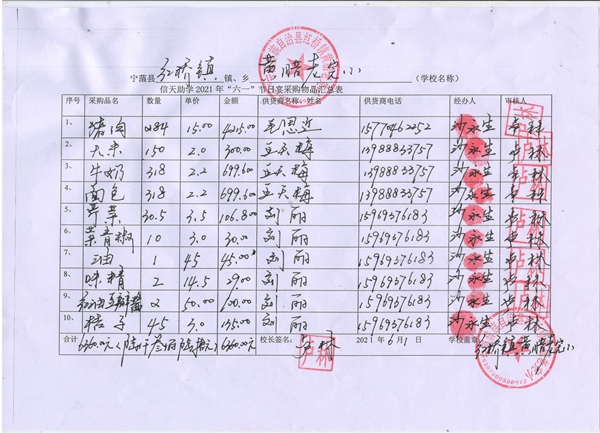 宁蒗县 红桥镇 镇、乡 黄腊老完小 (学校名称)
信天助学2021年“六一”节日宴采购物品汇总表
序号 采购品名 数量 单价 金额 供货商名称、姓名 供货商电话 经办人 审核人
1、 猪肉 15.00 4215.00 王恩近 15770462252 沙永生 卢林
2、 大米 150 2.0 300.00 王天梅 13988833757 沙永生 卢林
3、 牛奶 318 2.2 699.600 王天梅 13988833757 沙永生 卢林
4、 面包 318 2.2 699.600 王天梅 13988833757 沙永生 卢林
5、 芹菜 30.5 3.5 106.800 刘丽 15969376183 沙永生 卢林
6、 菜青椒 10 3.0 30.00 刘丽 15969376183 沙永生 卢林
7、 油 1 45 45.00 刘丽 15969376183 沙永生 卢林
8、 味精 2 14.5 29.00 刘丽 15969376183 沙永生 卢林
9、 红油豆瓣酱 2 50.00 100.00 刘丽 15969376183 沙永生 卢林
10、 桔子 45 3.0 135.00 刘丽 15969376183 沙永生 卢林
合计 6360.00元 (陆仟叁佰陆拾元) 6360.00元 校长签名: 卢林 2021年6月1日 学校盖章: 红桥镇黄腊老完小